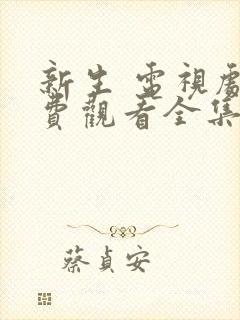 新生 電視劇
費觀看全集
蔡貞安